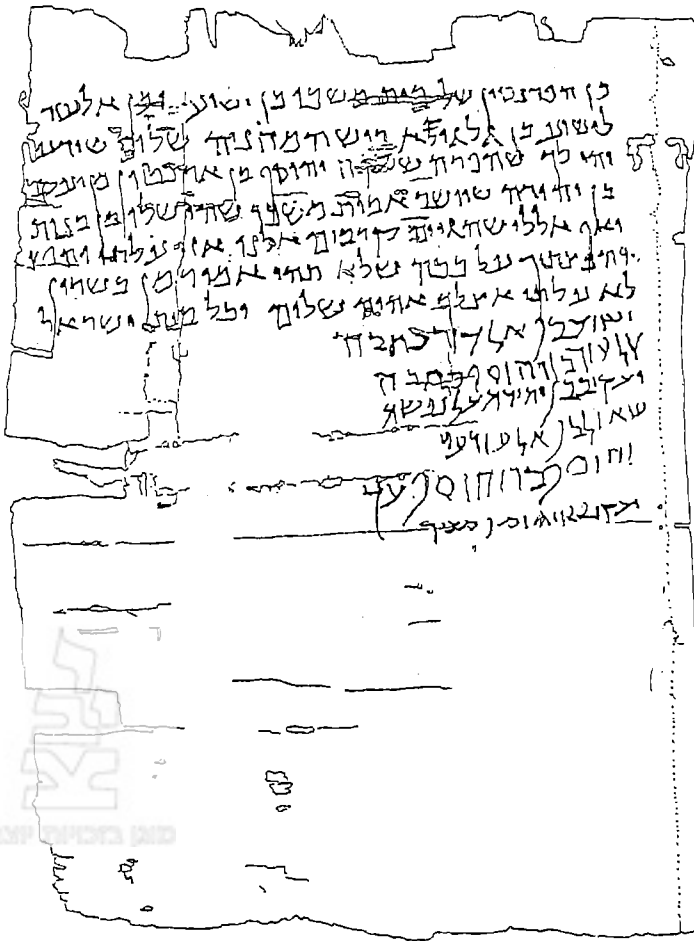 מן הפרנסין של בית משכו מן ישוע ומן אלעזר
לישוע בן גלגולא ריש המחניה שלום שידע
יהי לך שהפרה שלקח יהוסף בן אריסטון מן יעקב
בן יהודה שיושב בבית משכו שהי שלו מזבנות
ואף אללי שהגיים קרבים אלנו אזי עלתי
על ככה שלא תהי אמור מן בסרון
לא עלתי אצלך אהוה שלום וכל בית ישראל
ישוע בן אלעזר כתבה
אלעזר בן יהוסף כתבה
יעקב בן יהודה על נפשה
שאול בן אלעזר עד
יהוסף בר יהוסף עד
יעקב בן יהוסף מעיד
מוגן בזכויות